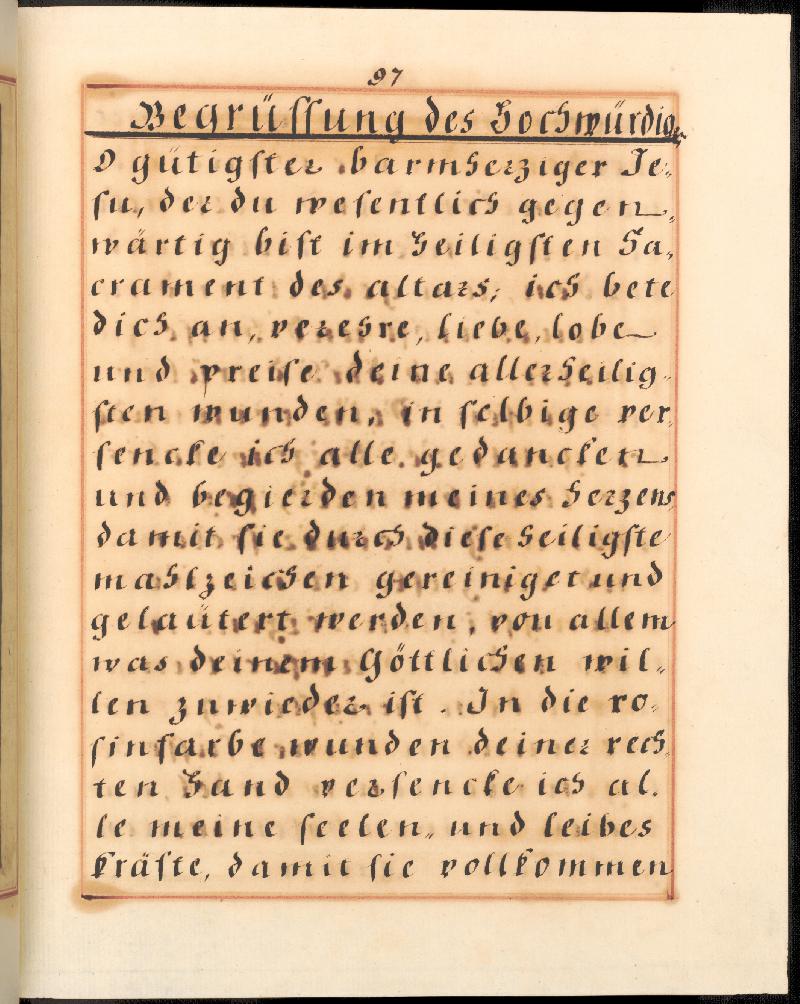 97
Begrüssung des Hochwürdig
O gütigster barmherziger Je,
su, der du wesentlich gegen,
wärtig bist im Heiligsten Sa,
crament des altars, ich bete
dich an, verehre, liebe, lobe
und preise deine allerheilig,
sten wunden, in selbige ver,
sencke ich alle gedancken
und begierden meines herzens
damit sie durch diese heiligste
mahlzeichen gereiniget und
geläutert werden, von allem
was deinem Göttlichen wil,
len zuwieder ist. In die ro,
sinfarbe wunden deiner rech,
ten Hand versencke ich al,
le meine seelen, und leibes
kräfte, damit sie vollkommen